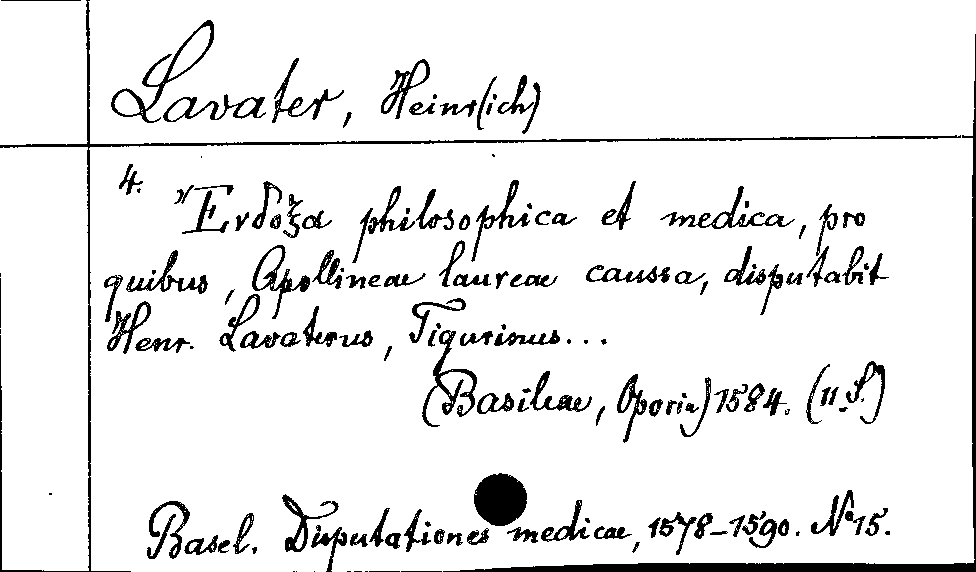 Lavater, Heinr(ich)
4.
Ἔνδοξα philosophica et medica, pro
quibus, Apollineae laureae caussa, disputabit
Henr. Lavaterus, Tigurinus...
(Basileae, Oporin) 1584. (11 S.)
Basel. Disputationes medicae, 1578-1590. No 15.